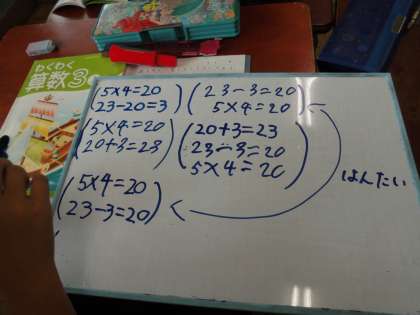 わくわく
算数3
5×4=20
23-20=3
23-3=20
5×4=20
5×4=20
20+3=23
20+3=23
23-3=20
5×4=20
5×4=20
23-3=20
はんたい